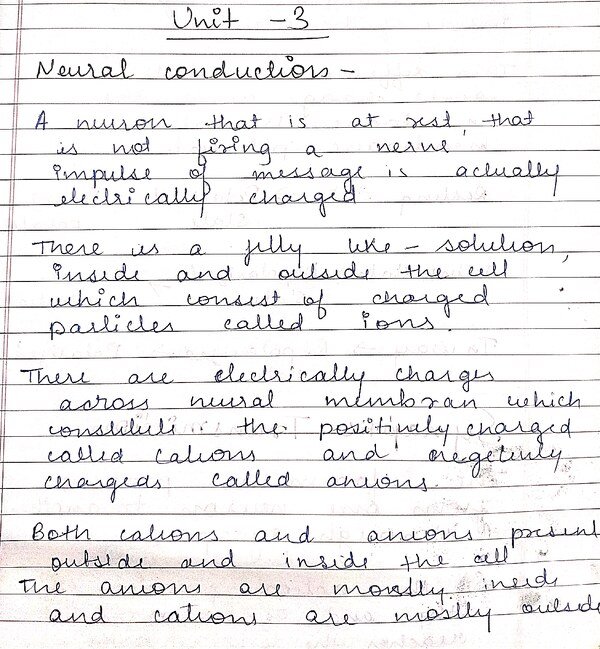 Unit - 3
Neural conduction -
A neuron that is at rest, that
is not firing a nerve
impulse of message is actually
electrically charged
There is a jelly like - solution,
inside and outside the cell
which consist of charged
particles called ions.
There are electrically charges
across neural membran which
constitute the positively charged
called cations and negetively
chargeds called anions.
Both cations and anions present
outside and inside the cell
The anions are mostly inside
and cations are mostly outside